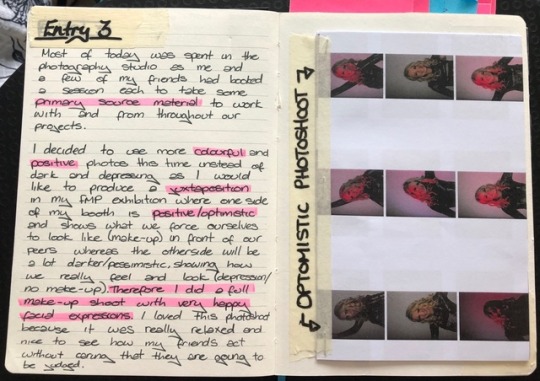 Entry 3
Most of today was spent in the
photography studio as me and
a few of my friends had booked
a session each to take some
primary source material to work
with and from throughout our
projects.
I decided to use more colourful and
positive photos this time instead of
dark and depressing as I would
like to produce a juxtaposition
in my FMP exhibition where one side
of my booth is positive/optimistic
and shows what we force ourselves
to look like (make-up) in front of our
peers whereas the otherside will be
a lot darker/pessimistic, showing how
we really feel and look (depression/
no make-up). Therefore I did a full
make-up shoot with very happy
facial expressions. I loved this photoshoot
because it was really relaxed and
nice to see how my friends act
without caring that they are going to
be judged.
OPTOMISTIC PHOTOSHOOT